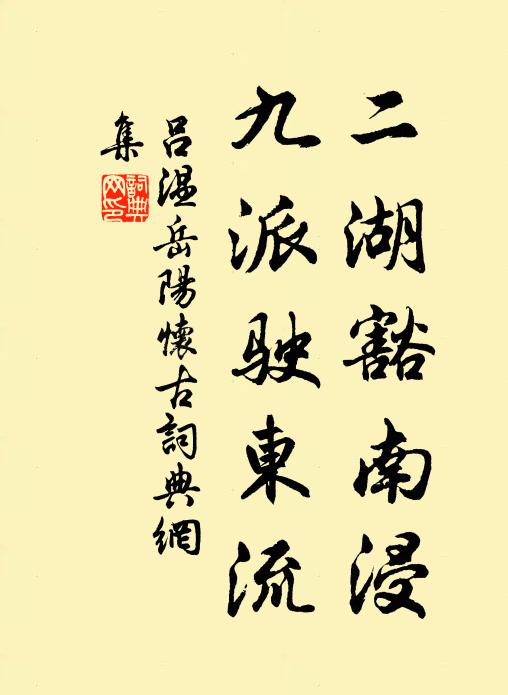 二湖豁南浸
九派駛東流
呂溫岳陽懷古詞典網
集
詞典
网印